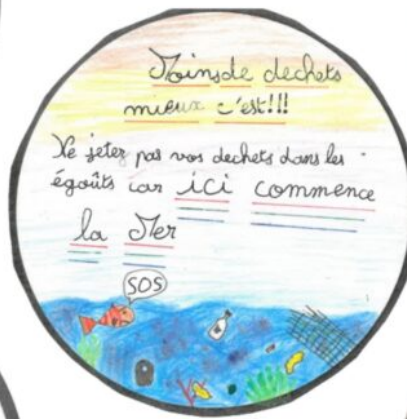 Moins de dechets
mieux c'est!!!
Ne jetez pas vos dechets dans les
égoûts car ici commence
la Mer
SOS